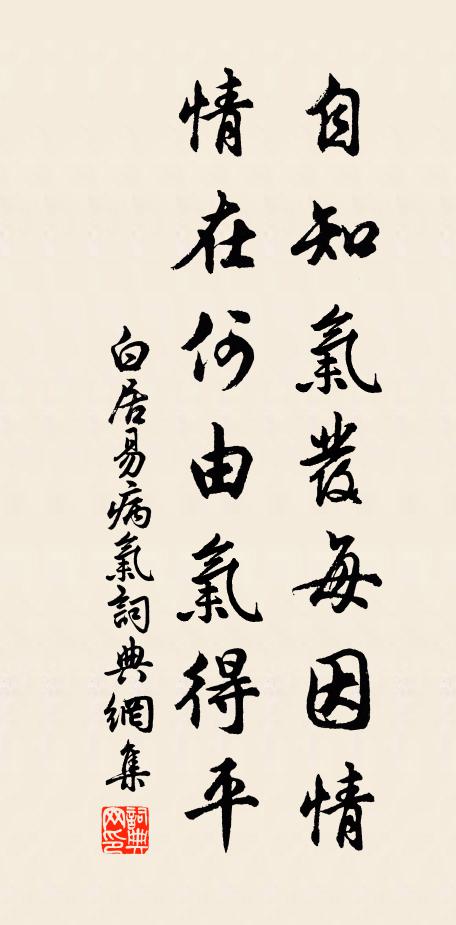 自知氣發每因情
情在何由氣得平
白居易病氣詞典網集
詞典網印